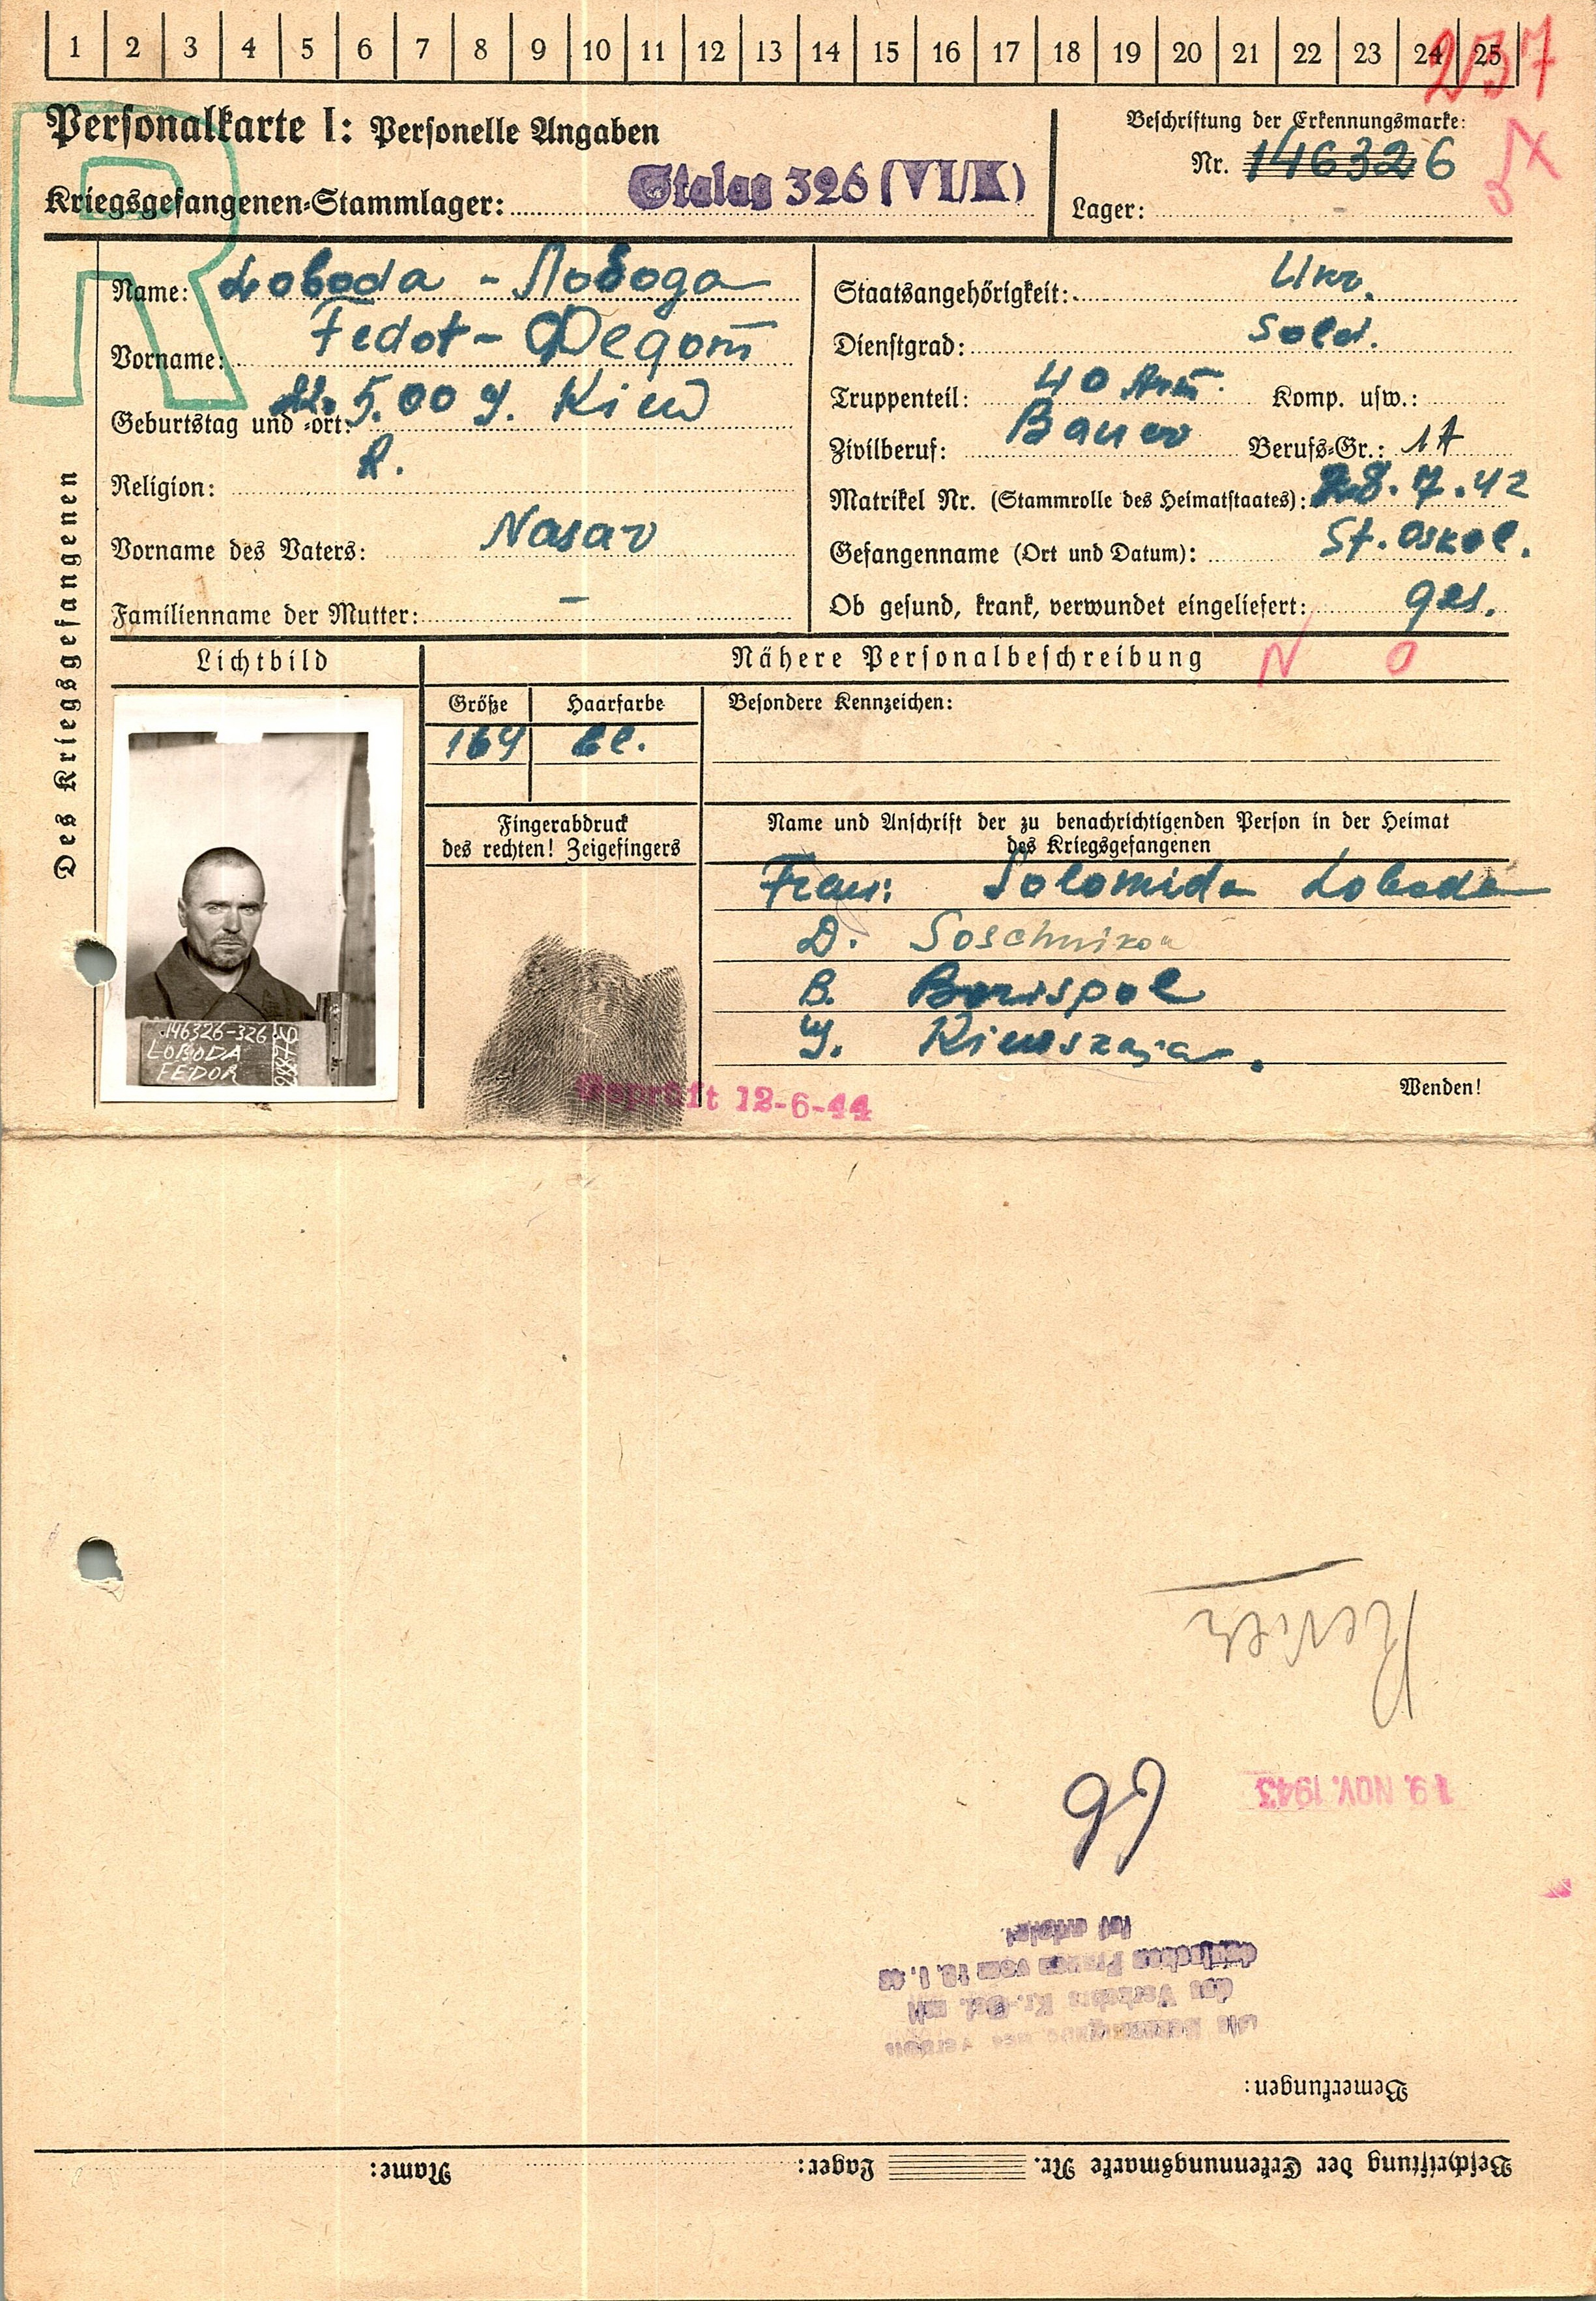 1 2 3 4 5 6 7 8 9 10 11 12 13 14 15 16 17 18 19 20 21 22 23 24 25
237
Personalkarte I: Personelle Angaben
Kriegsgefangenen-Stammlager: Stalag 326 (VI/K)
Beschriftung der Erkennungsmarke:
Nr. 146326
Lager:
R
Des Kriegsgefangenen
Name: Loboda - Лобода
Vorname: Fedot - Федот
Geburtstag und -ort: 5.00 g. Kiew
Religion: R.
Vorname des Vaters: Nasar
Familienname der Mutter: –
Staatsangehörigkeit: Ukr.
Dienstgrad: Sold.
Truppenteil: 40 Komp. usw.:
Zivilberuf: Bauer Berufs-Gr.: 1A
Matrikel Nr. (Stammrolle des Heimatstaates): 28.7.42
Gefangenname (Ort und Datum): St. Oskol.
Ob gesund, krank, verwundet eingeliefert: ges.
Lichtbild
Nähere Personalbeschreibung
N O
Größe Haarfarbe Besondere Kennzeichen:
169 bl.
Fingerabdruck
des rechten! Zeigefingers
Name und Anschrift der zu benachrichtigenden Person in der Heimat
des Kriegsgefangenen
Frau: Solomida Loboda
D. Soschnikow
B. Borispol
G. Kiewskaja.
146326-326
LOBODA
FEDOR
Wenden!
Geprüft 12-6-44
Revier
19. NOV. 1943
99
ist erfolgt.
deutschen Frauen vom
des Verkehrs Kr.-Gef. mit
Bemerkungen:
Beschriftung der Erkennungsmarke Nr. Lager: Name: